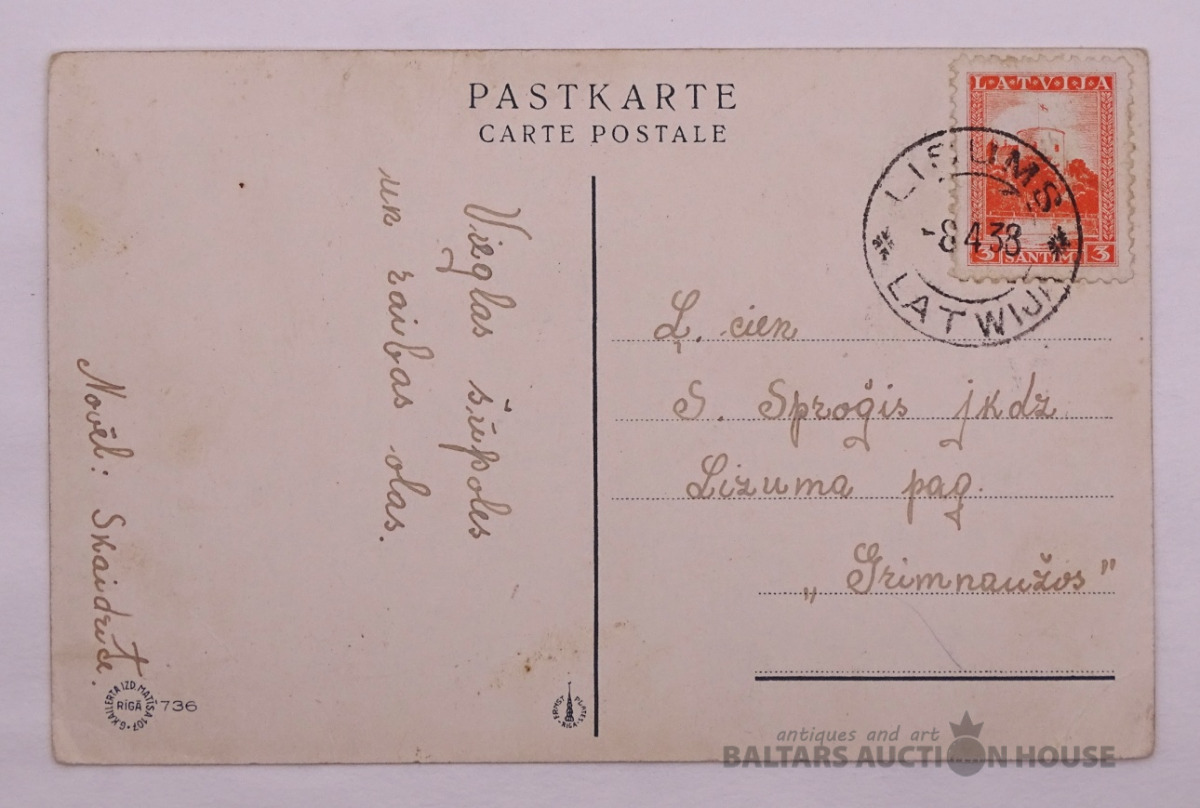 PASTKARTE
CARTE POSTALE
LATVIJA
3 SANTIMI 3
-8.4.38
LATWIJA
Vieglas šūpoles
un raibas olas.
Novēl: Skaidrīte.
Ļ. cien
S. Sproģis jkdz
Lizuma pag.
„Grimnaužos”
G. KAILERTA IZD. MATĪSA 107
RĪGĀ
736
antiques and art
BALTARS AUCTION HOUSE